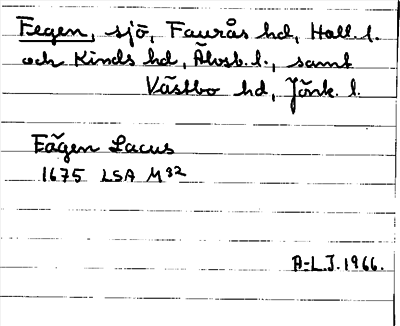 Fegen, sjö, Faurås hd, Hall. l.
och Kinds hd, Älvsb. l., samt
Västbo hd, Jönk. l.
Fägen Lacus
1675 LSA M 82
A-L.J. 1966.